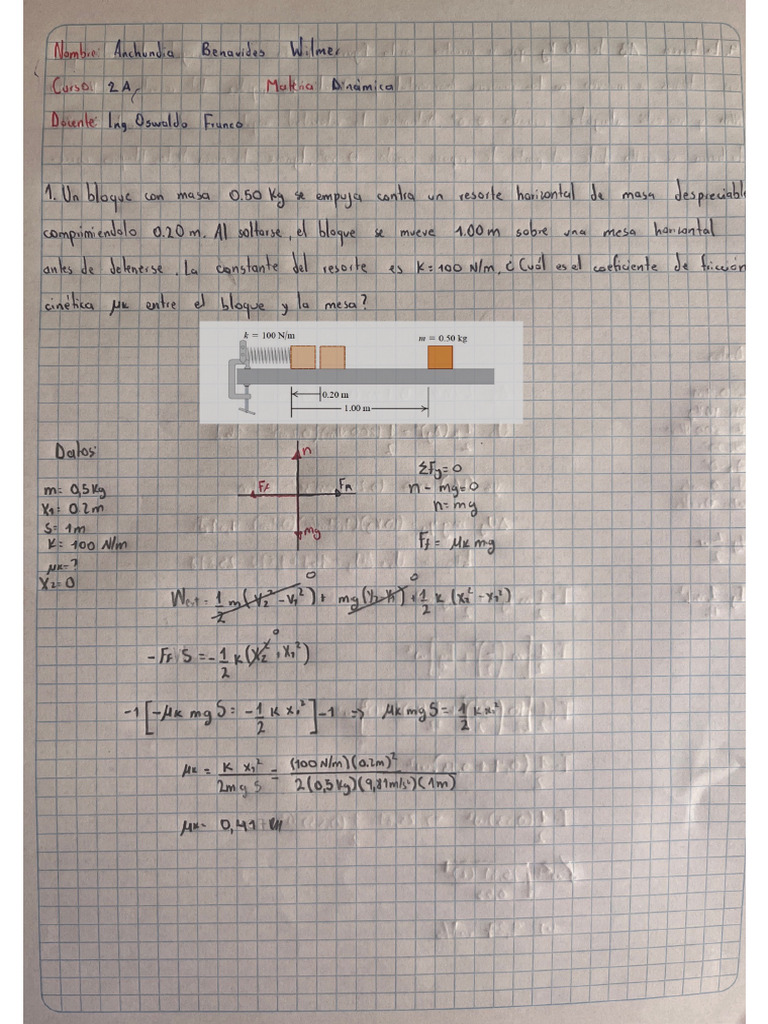 Nombre: Anchundia Benavides Wilmer
Curso: 2A
Materia Dinámica
Docente: Ing Oswaldo Franco
1. Un bloque con masa 0.50 Kg se empuja contra un resorte horizontal de masa despreciable
comprimiendolo 0.20 m. Al soltarse, el bloque se mueve 1.00 m sobre una mesa horizontal
antes de detenerse. La constante del resorte es K=100 N/m, ¿Cuál es el coeficiente de fricción
cinética μk entre el bloque y la mesa?
k = 100 N/m
m = 0.50 kg
0.20 m
1.00 m
Datos:
m= 0,5 Kg
x1= 0.2m
S= 1m
K= 100 N/m
μk=?
X2=0
n
Ff
Fn
mg
ΣFy=0
n - mg=0
n=mg
Ff= μk mg
0 0
West = 1/2 m(V2² - V1²) + mg(Y2-Y1) + 1/2 K (X2² - X1²)
0
-Ff S = -1/2 K(X2² + X1²)
-1[-μk mg S = -1/2 K X1²]-1 => μk mg S = 1/2 K X1²
μk = K X1²/2mg S = (100 N/m)(0.2m)²/2(0,5Kg)(9,81m/s²)(1m)
μk= 0,41